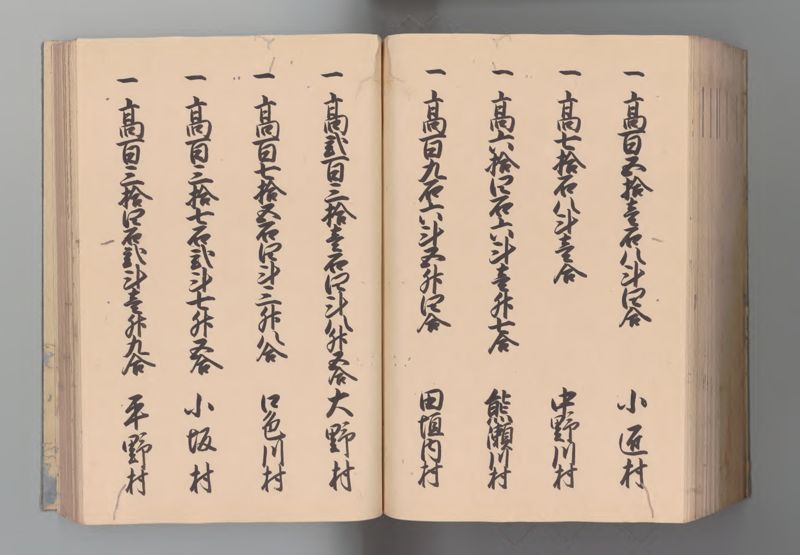 一 高百五拾壹石八斗四合 小匠村
一 高七拾石八斗壹合 中野川村
一 高六拾四石六斗壹升七合 熊瀬川村
一 高百九石六斗五升四合 田垣内村
一 高貳百三拾壹石四斗八升五合 大野村
一 高百七拾五石四斗三升八合 口色川村
一 高百三拾七石貳斗七升五合 小坂村
一 高百三拾四石貳斗壹升九合 平野村